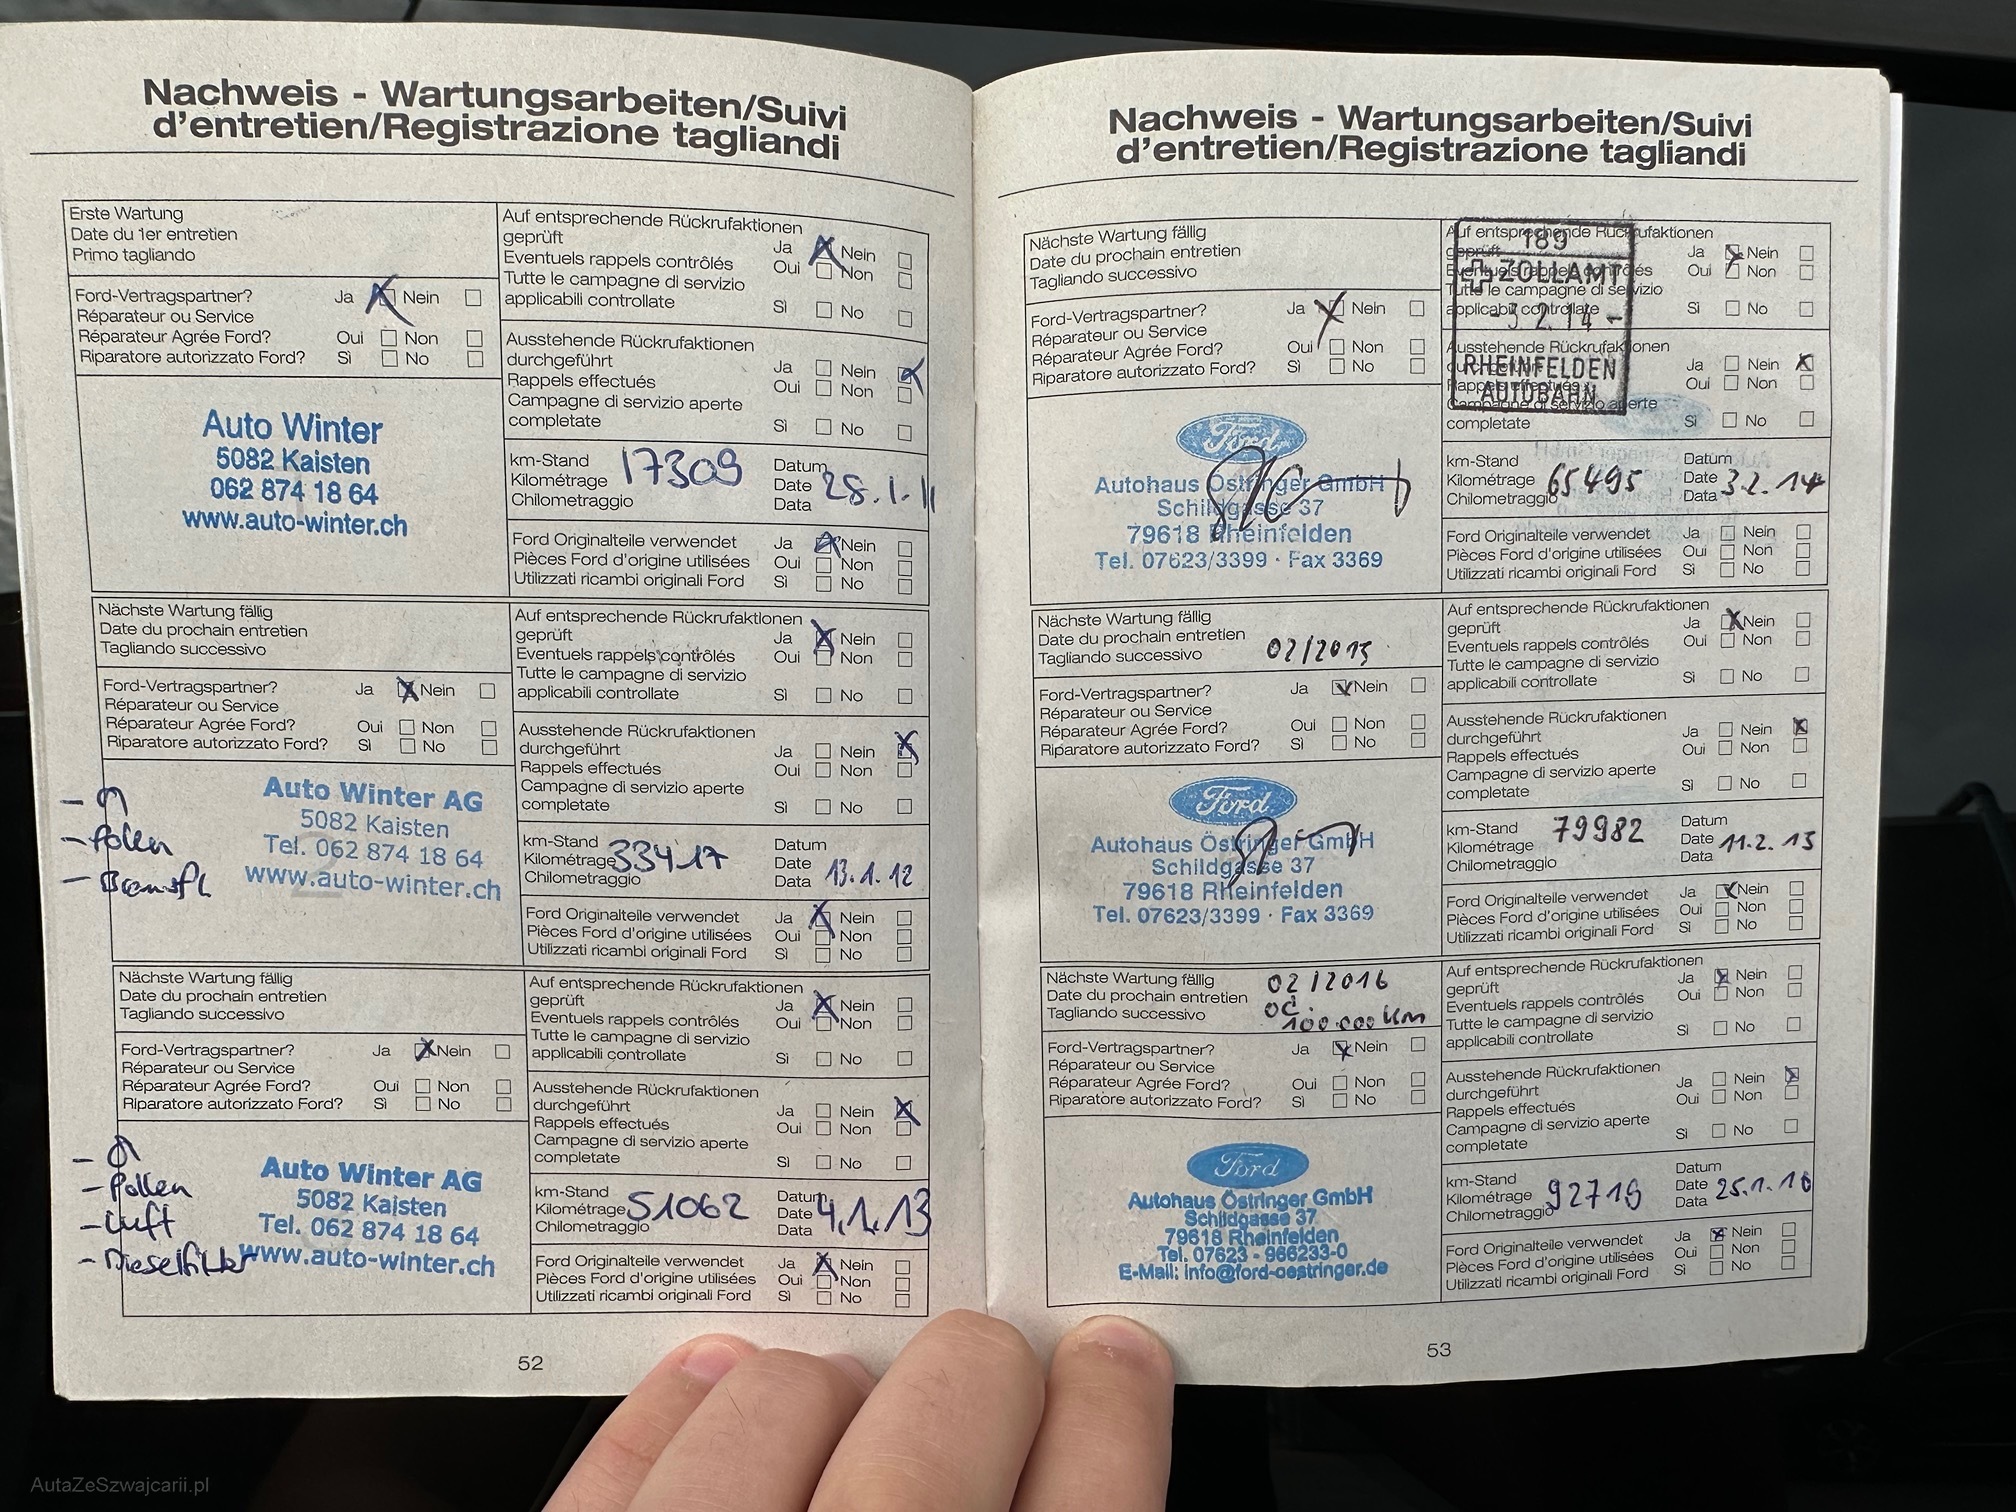 Nachweis - Wartungsarbeiten/Suivi
d'entretien/Registrazione tagliandi
Erste Wartung
Date du 1er entretien
Primo tagliando
Ford-Vertragspartner? Ja Nein
Réparateur ou Service
Réparateur Agrée Ford? Oui Non
Riparatore autorizzato Ford? Sì No
Auto Winter
5082 Kaisten
062 874 18 64
www.auto-winter.ch
Auf entsprechende Rückrufaktionen
geprüft Ja Nein
Eventuels rappels contrôlés Oui Non
Tutte le campagne di servizio
applicabili controllate Sì No
Ausstehende Rückrufaktionen
durchgeführt Ja Nein
Rappels effectués Oui Non
Campagne di servizio aperte
completate Sì No
km-Stand Datum
Kilométrage 17309 Date 28.1.11
Chilometraggio Data
Ford Originalteile verwendet Ja Nein
Pièces Ford d'origine utilisées Oui Non
Utilizzati ricambi originali Ford Sì No
Nächste Wartung fällig
Date du prochain entretien
Tagliando successivo
Ford-Vertragspartner? Ja Nein
Réparateur ou Service
Réparateur Agrée Ford? Oui Non
Riparatore autorizzato Ford? Sì No
- Pollen
- Bremsfl.
Auto Winter AG
5082 Kaisten
Tel. 062 874 18 64
www.auto-winter.ch
2
Auf entsprechende Rückrufaktionen
geprüft Ja Nein
Eventuels rappels contrôlés Oui Non
Tutte le campagne di servizio
applicabili controllate Sì No
Ausstehende Rückrufaktionen
durchgeführt Ja Nein
Rappels effectués Oui Non
Campagne di servizio aperte
completate Sì No
km-Stand Datum
Kilométrage 33417 Date
Chilometraggio Data 13.1.12
Ford Originalteile verwendet Ja Nein
Pièces Ford d'origine utilisées Oui Non
Utilizzati ricambi originali Ford Sì No
Nächste Wartung fällig
Date du prochain entretien
Tagliando successivo
Ford-Vertragspartner? Ja Nein
Réparateur ou Service
Réparateur Agrée Ford? Oui Non
Riparatore autorizzato Ford? Sì No
- Pollen
- Luft
- Dieselfilter
Auto Winter AG
5082 Kaisten
Tel. 062 874 18 64
www.auto-winter.ch
Auf entsprechende Rückrufaktionen
geprüft Ja Nein
Eventuels rappels contrôlés Oui Non
Tutte le campagne di servizio
applicabili controllate Sì No
Ausstehende Rückrufaktionen
durchgeführt Ja Nein
Rappels effectués Oui Non
Campagne di servizio aperte
completate Sì No
km-Stand Datum
Kilométrage 51062 Date 4.1.13
Chilometraggio Data
Ford Originalteile verwendet Ja Nein
Pièces Ford d'origine utilisées Oui Non
Utilizzati ricambi originali Ford Sì No
52
Nachweis - Wartungsarbeiten/Suivi
d'entretien/Registrazione tagliandi
Nächste Wartung fällig
Date du prochain entretien
Tagliando successivo
Ford-Vertragspartner? Ja Nein
Réparateur ou Service
Réparateur Agrée Ford? Oui Non
Riparatore autorizzato Ford? Sì No
Ford
Autohaus Östringer GmbH
Schildgasse 37
79618 Rheinfelden
Tel. 07623/3399 · Fax 3369
Auf entsprechende Rückrufaktionen
geprüft Ja Nein
Eventuels rappels contrôlés Oui Non
Tutte le campagne di servizio
applicabili controllate Sì No
189
ZOLLAMT
- 3. 2. 14 -
RHEINFELDEN
AUTOBAHN
Ausstehende Rückrufaktionen
durchgeführt Ja Nein
Rappels effectués Oui Non
Campagne di servizio aperte
completate Sì No
km-Stand Datum
Kilométrage 65495 Date 3.2.14
Chilometraggio Data
Ford Originalteile verwendet Ja Nein
Pièces Ford d'origine utilisées Oui Non
Utilizzati ricambi originali Ford Sì No
Nächste Wartung fällig
Date du prochain entretien
Tagliando successivo 02/2015
Ford-Vertragspartner? Ja Nein
Réparateur ou Service
Réparateur Agrée Ford? Oui Non
Riparatore autorizzato Ford? Sì No
Ford
Autohaus Östringer GmbH
Schildgasse 37
79618 Rheinfelden
Tel. 07623/3399 · Fax 3369
Auf entsprechende Rückrufaktionen
geprüft Ja Nein
Eventuels rappels contrôlés Oui Non
Tutte le campagne di servizio
applicabili controllate Sì No
Ausstehende Rückrufaktionen
durchgeführt Ja Nein
Rappels effectués Oui Non
Campagne di servizio aperte
completate Sì No
km-Stand 79982 Datum
Kilométrage Date 11.2.15
Chilometraggio Data
Ford Originalteile verwendet Ja Nein
Pièces Ford d'origine utilisées Oui Non
Utilizzati ricambi originali Ford Sì No
Nächste Wartung fällig 02/2016
Date du prochain entretien od.
Tagliando successivo 100.000 km
Ford-Vertragspartner? Ja Nein
Réparateur ou Service
Réparateur Agrée Ford? Oui Non
Riparatore autorizzato Ford? Sì No
Ford
Autohaus Östringer GmbH
Schildgasse 37
79618 Rheinfelden
Tel. 07623 - 966233-0
E-Mail: info@ford-oestringer.de
Auf entsprechende Rückrufaktionen
geprüft Ja Nein
Eventuels rappels contrôlés Oui Non
Tutte le campagne di servizio
applicabili controllate Sì No
Ausstehende Rückrufaktionen
durchgeführt Ja Nein
Rappels effectués Oui Non
Campagne di servizio aperte
completate Sì No
km-Stand Datum
Kilométrage 92716 Date 25.1.16
Chilometraggio Data
Ford Originalteile verwendet Ja Nein
Pièces Ford d'origine utilisées Oui Non
Utilizzati ricambi originali Ford Sì No
53
AutaZeSzwajcarii.pl